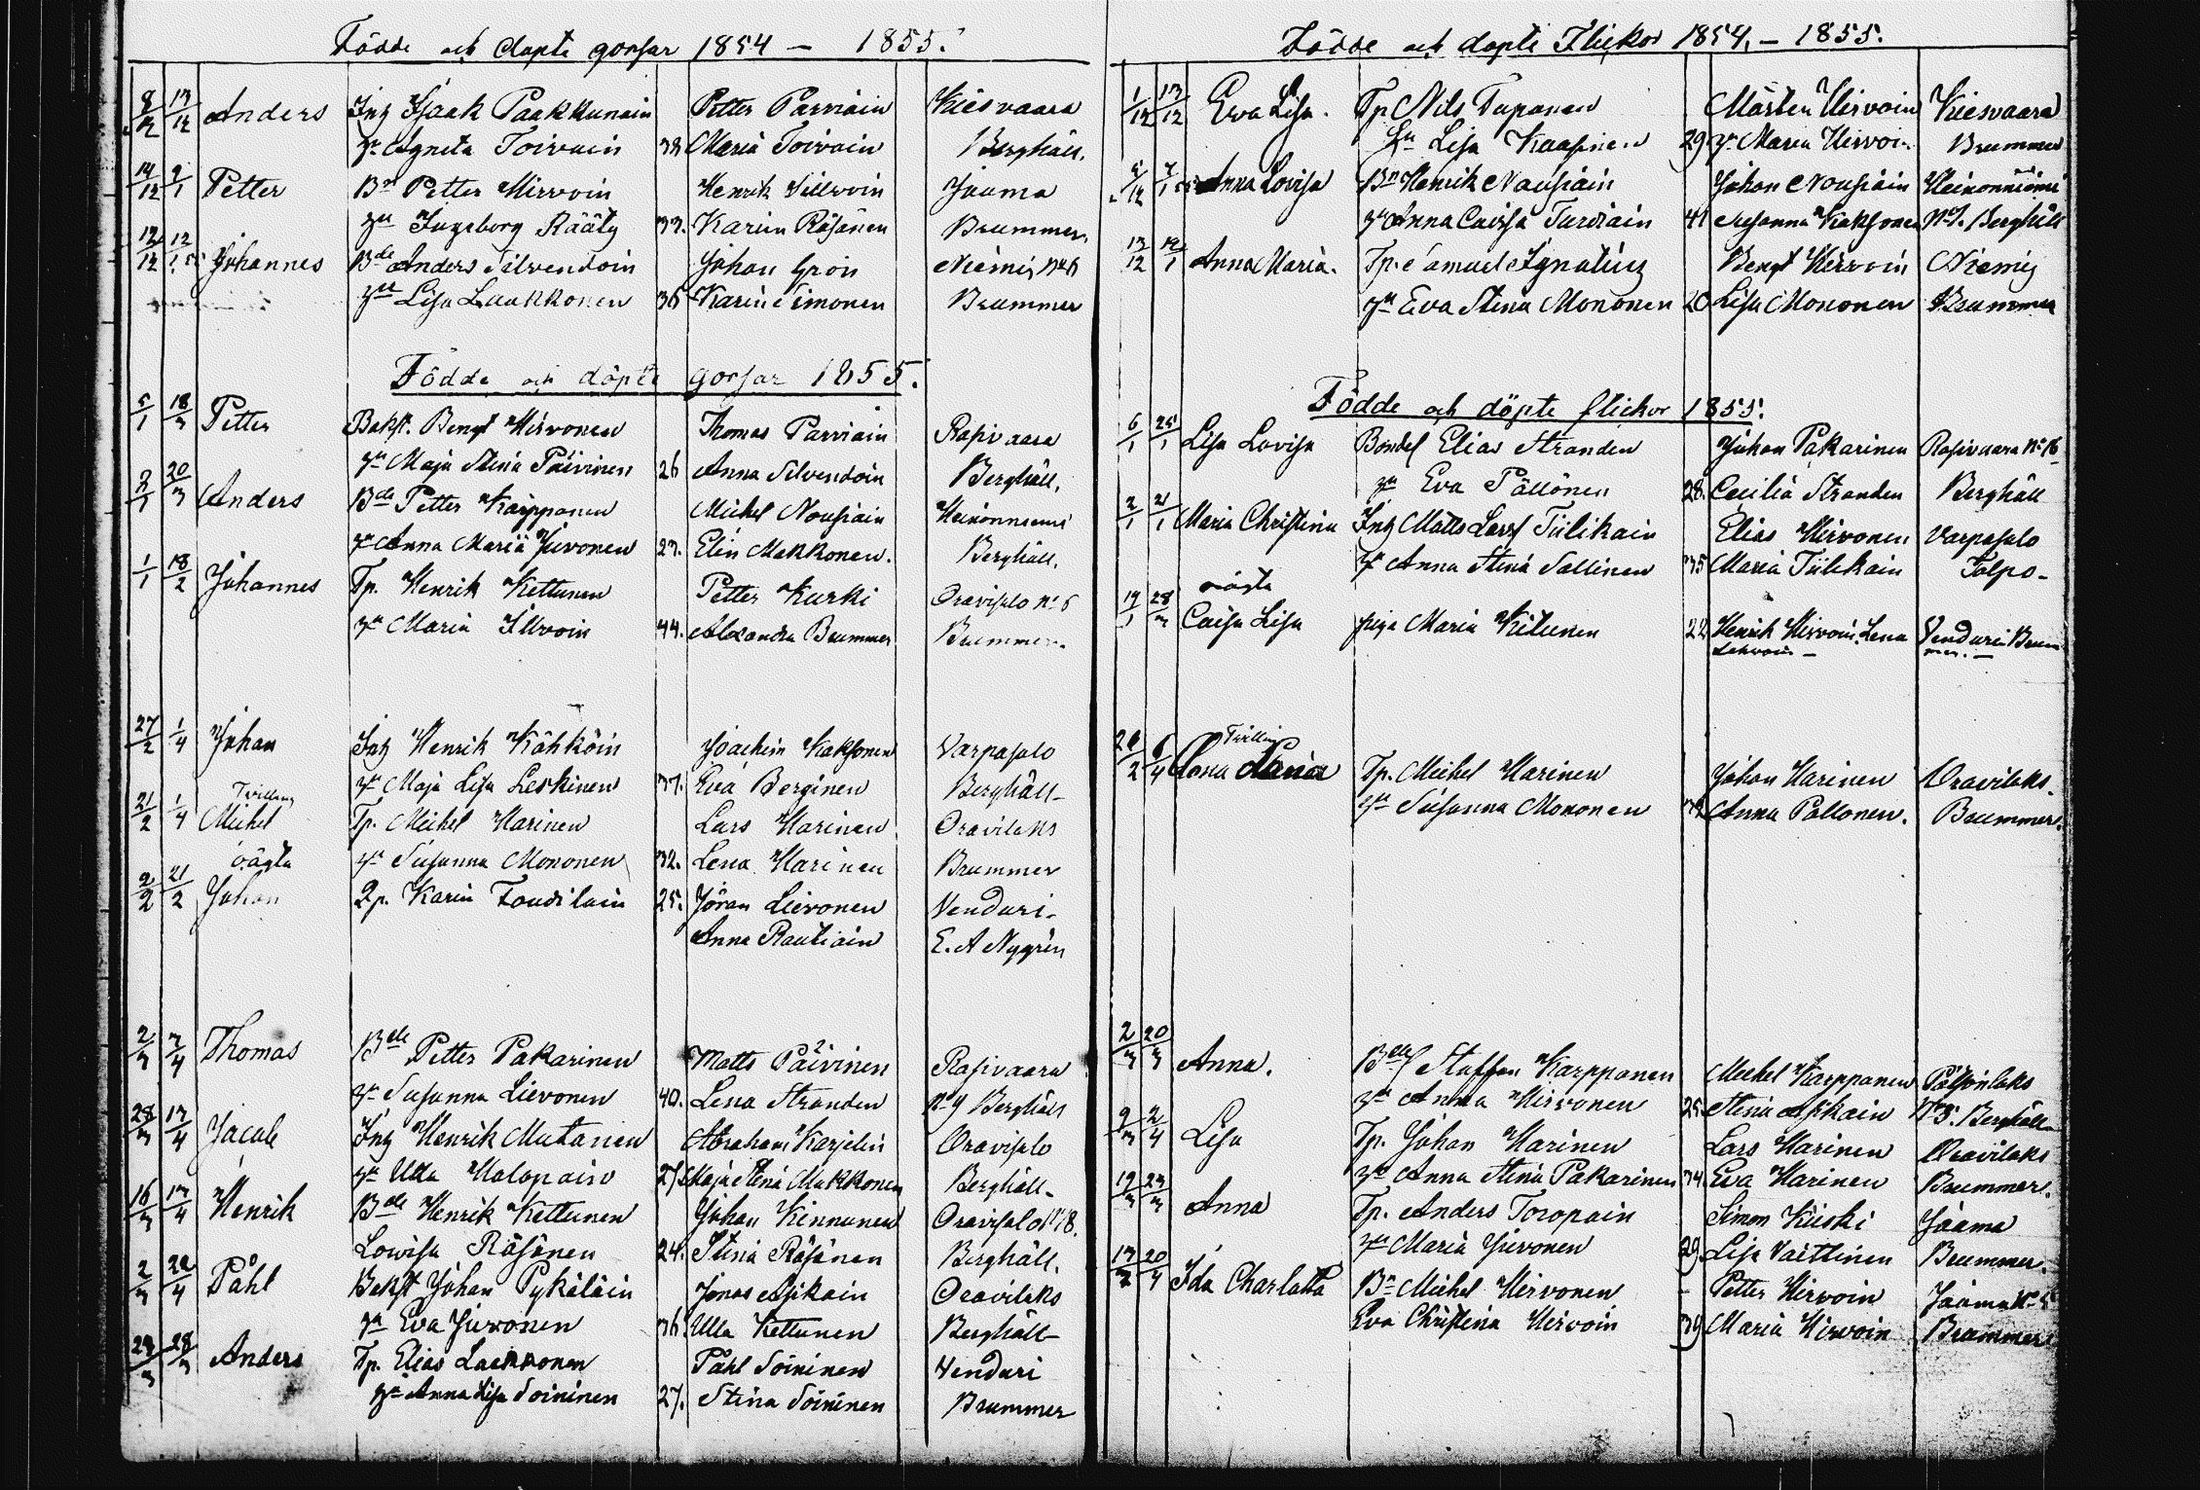 Födde och döpte gossar 1854 – 1855.
8/12 13/12 Anders Inh Isaak Paakkunain Petter Parviain Kiesvaara
Agneta Toivain 38 Maria Toivain Berghäll.
14/12 2/1 Petter Bn Petter Hirvoin Henrik Jaama
hu Ingeborg Rääty 33. Karin Räsänen Brummer.
12/12 12/1 55 Johannes Bde Anders Silvendoin Johan Grön Niemis No 6
hu Lisa Laakkonen 36 Karin Simonen Brummer
Födde och döpte gossar 1855.
5/1 18/3 Petter Bakst. Bengt Hirvonen Thomas Parviain Rasivaara
hu Maja Stina Päivinen 26 Anna Silvendoin Berghäll.
2/1 20/3 Anders Bde Petter Karpponen Michel Nousiain Heinonniemi
hu Anna Maria Juvonen 23. Elin Makkonen. Berghäll.
1/1 18/2 Johannes Tp. Henrik Kettunen Petter Kurki Oravisalo No 6
hu Maria Illvoin 44. Alexandra Brummer Brummer
27/2 1/4 Johan Inh Henrik Kähköin Joachim Kaksonen Varpasalo
hu Maja Lisa Leskinen 37. Eva Berginen Berghäll
21/2 1/4 Tvilling Michel Tp. Michel Harinen Lars Harinen Oravilaks
hu Susanna Mononen 32. Lena Harinen Brummer
2/2 21/2 oägta Johan Qp. Karin Toudilain 25. Jöran Lievonen Venduri
Anna Rautiain E. A Nygrén
2/3 7/4 Thomas Bde Petter Pakarinen Matts Päivinen Rasivaara
hu Susanna Lievonen 40. Lena Stranden No 9 Berghäll
28/3 13/4 Jacob Inh Henrik Mutanen Abraham Karjelin Oravisalo
hu Ulla Halapain 27 Maja Stina Makkonen Berghäll
16/3 13/4 Henrik Bde Henrik Kettunen Johan Kinnunen Oravisalo No 18.
Lowisa Räsänen 24. Stina Räsänen Berghäll.
2/3 22/4 Påhl Bakst Johan Pykäläin Jonas Asikain Oravilaks
hu Eva Juvonen 36. Ulla Kettunen Berghäll
23/3 28/3 Anders Tp. Elias Laakkonen Påhl Soininen Venduri
hu Anna Lisa Soininen 27. Stina Soininen Brummer
Födde och döpte Flickor 1854, – 1855.
1/12 13/12 Eva Lisa. Tp Nils Tapanen Mårten Hirvoin Kiesvaara
hu Lisa Kaasinen 29 hu Maria Hirvoin Brummer
5/12 7/1 55 Anna Lovisa Bn Henrik Nousiain Johan Nousiain Heinonniemi
hu Anna Caisa Turviain 41 Susanna Kaksonen Berghäll
13/12 14/1 Anna Maria. Tp. Samuel Ignatius Bengt Hirvoin Niemis
hu Eva Stina Mononen 20 Lisa Mononen Brummer
Födde och döpte flickor 1855.
6/1 25/1 Lisa Lovisa Bondel Elias Stranden Johan Pakarinen Rasivaara No 16
hu Eva Pällönen 28. Cecilia Stranden Berghäll
2/1 21/1 Maria Christina Inh Matts Larss Tiilikain Elias Hirvonen Varpasalo
hu Anna Stina Sallinen 35 Maria Tiilikain Tolpo
19/1 28/3 oägta Caisa Lisa piga Maria Kitunen 22 Henrik Hirvoin. Lena Venduri Brum
mer.
21/2 6/4 Tvilling Lena Maria Tp. Michel Harinen Johan Harinen Oravilaks.
hu Susanna Mononen 32 Anna Pollonen. Brummer.
2/3 20/3 Anna. Bde Staffan Karpponen Michel Karpponen
hu Anna Hirvonen 25. Stina Asikain No 5. Berghäll
9/3 2/4 Lisa Tp. Johan Harinen Lars Harinen Oravilaks
hu Anna Stina Pakarinen 34. Eva Harinen Brummer.
19/3 23/3 Anna Tp. Anders Toropain Simon Kiiski Jaama
hu Maria Juvonen 29. Lisa Vaittinen Brummer.
13/3 20/4 Ida Charlotta Bn Michel Hirvonen Petter Hirvoin Jaama No 5
Eva Christina Hirvoin 39 Maria Hirvoin Brummer